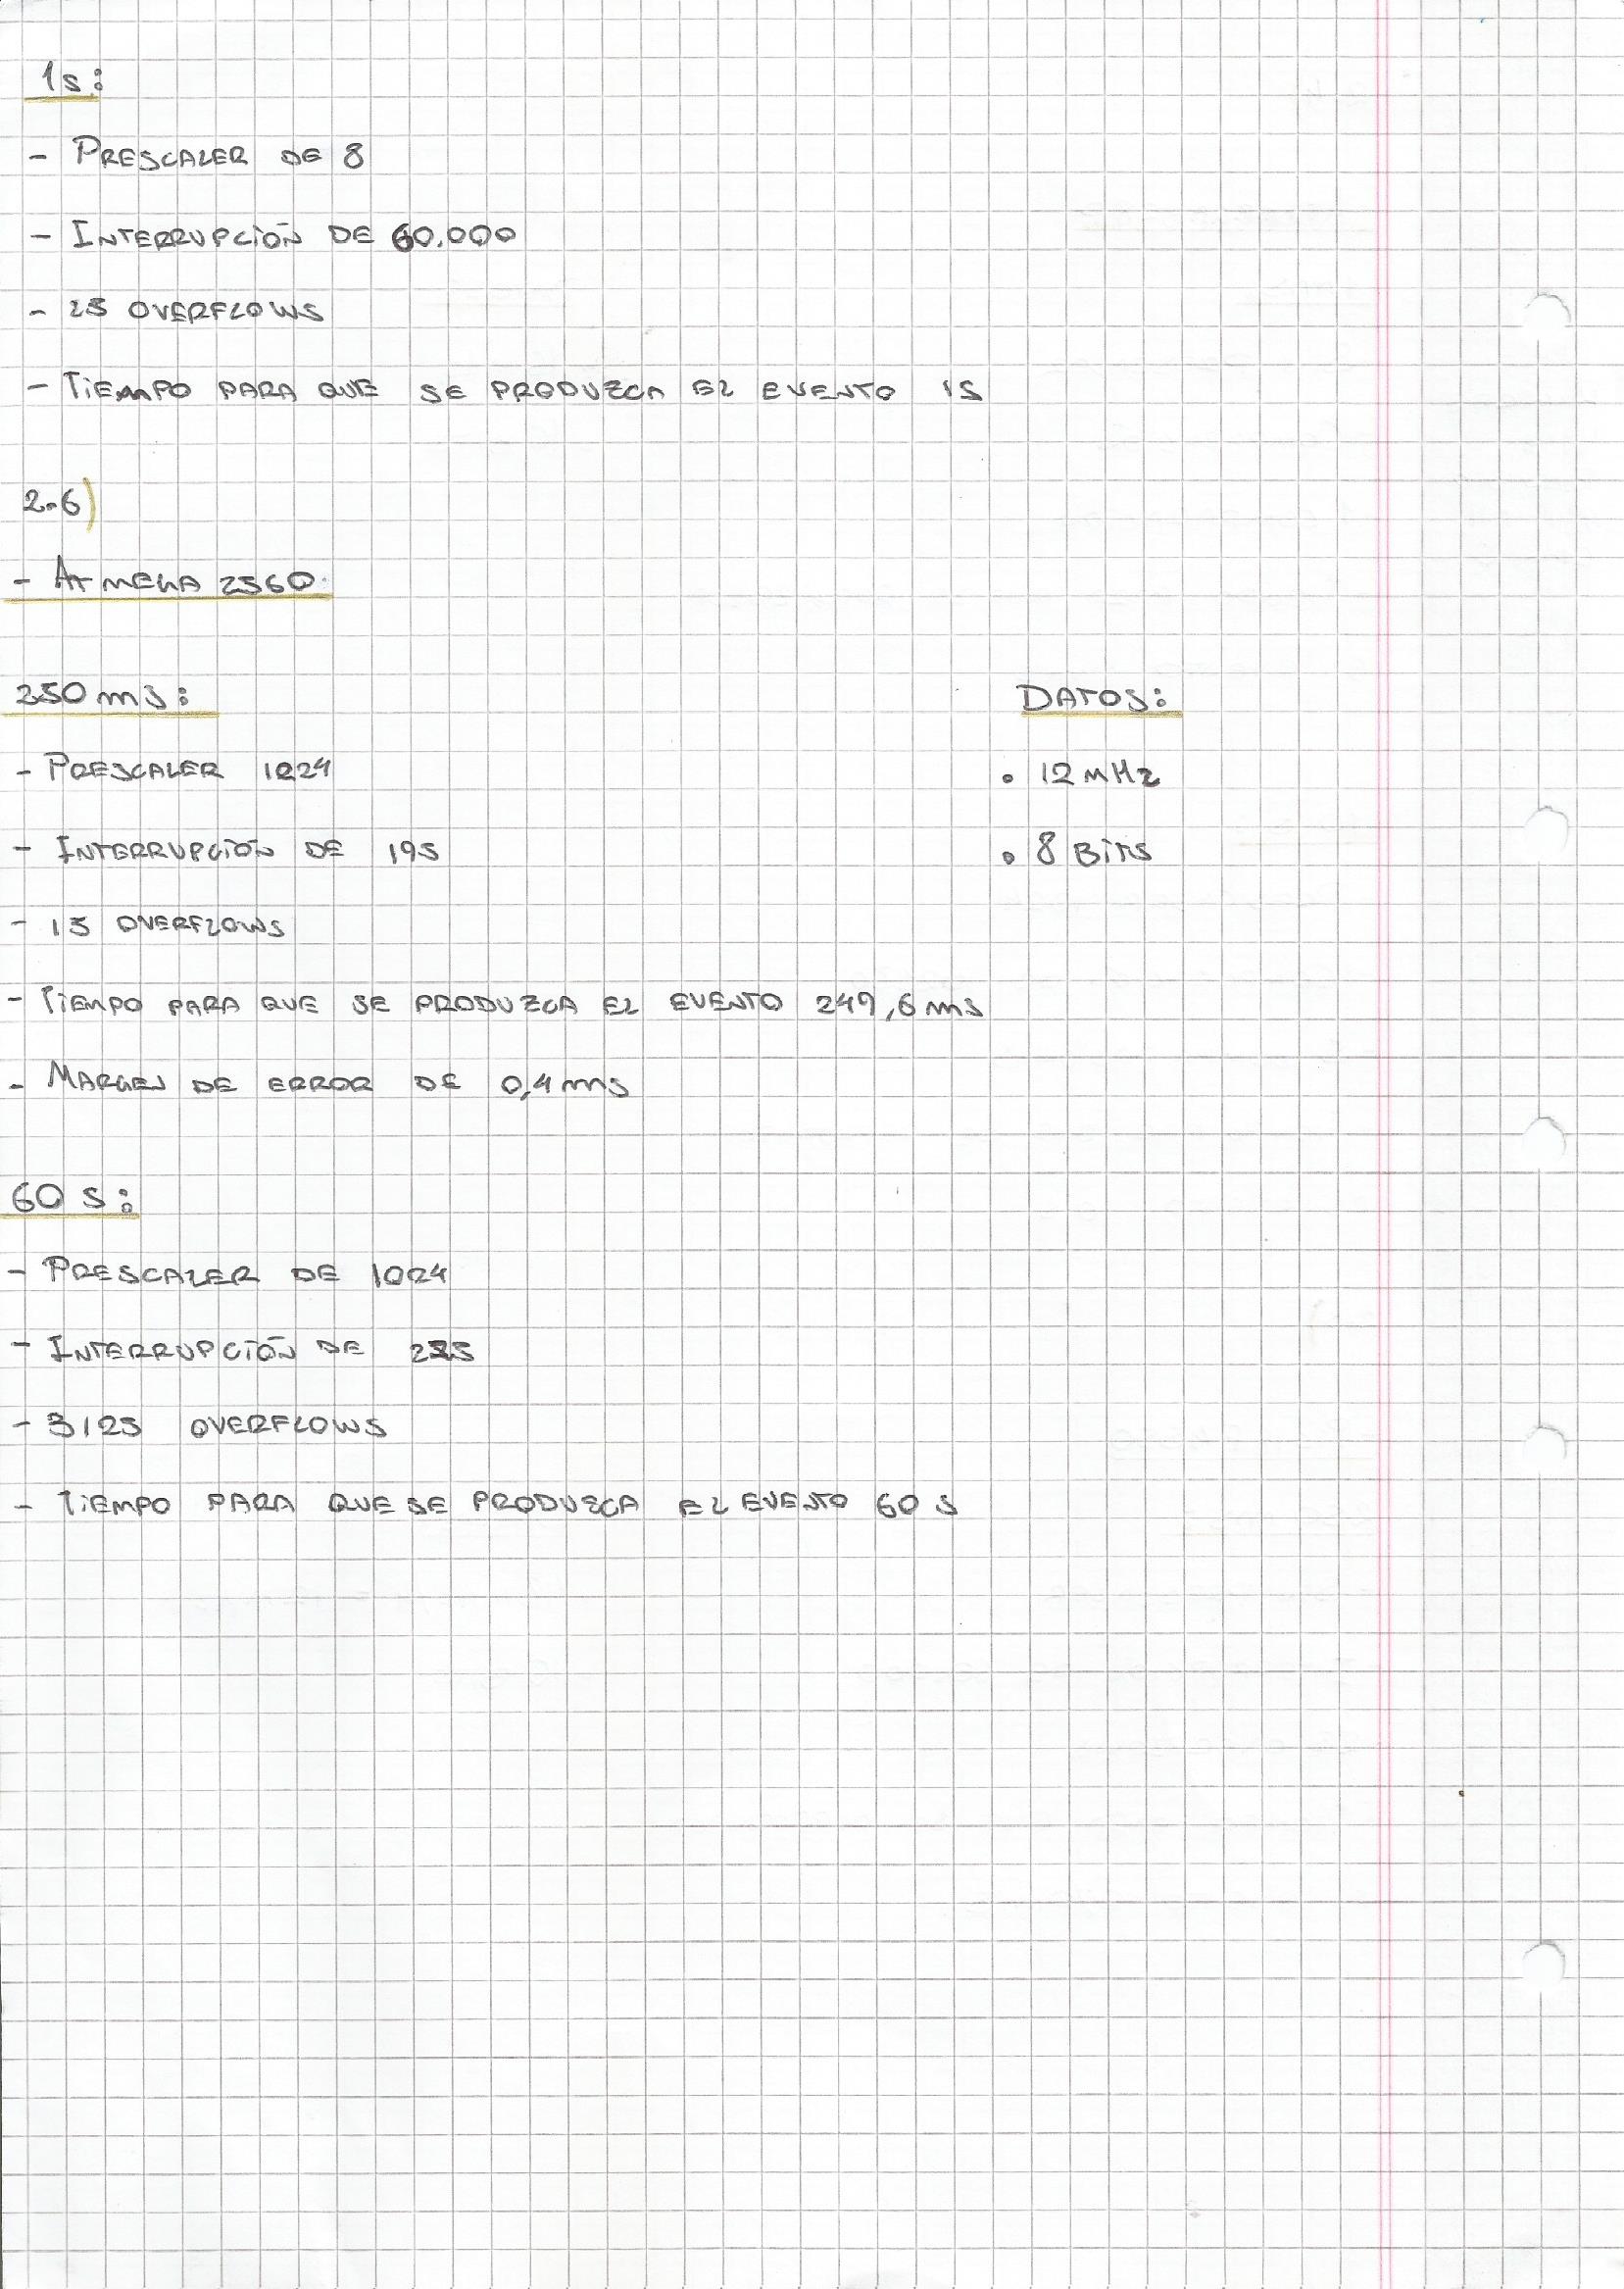 1s:
- PRESCALER DE 8
- INTERRUPCIÓN DE 60.000
- 25 OVERFLOWS
- TIEMPO PARA QUE SE PRODUZCA EL EVENTO 1S
2.6)
- ATMEGA 2560
250 ms:
- PRESCALER 1024
- INTERRUPCIÓN DE 195
- 15 OVERFLOWS
- TIEMPO PARA QUE SE PRODUZCA EL EVENTO 249,6 ms
- MARGEN DE ERROR DE 0,4 ms
DATOS:
• 12 MHz
• 8 BITS
60 S:
- PRESCALER DE 1024
- INTERRUPCIÓN DE 225
- 3125 OVERFLOWS
- TIEMPO PARA QUE SE PRODUZCA EL EVENTO 60 S